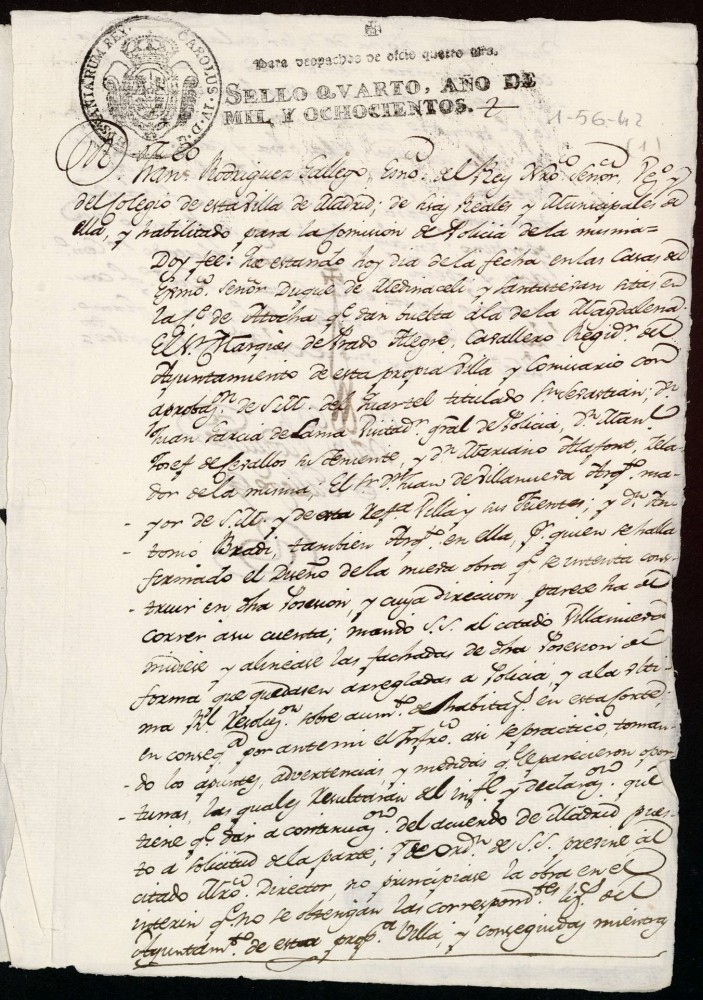 Para despachos de oficio quatro mrs.
SELLO QVARTO, AÑO DE
MIL Y OCHOCIENTOS.
HISPANIARUM REX. CAROLUS. IV. D. G.
1-56-42
(1)
Rodriguez Gallego, Esno. del Rey Nro. Señor,
del Colegio de esta Villa de Madrid, de Rentas Reales y Municipales de
ella, y habilitado para la Comision de Policia de la misma=
Doy fee: he estando hoy dia de la fecha en las Casas del
Exmo. Señor Duque de Medinaceli y Santisteban sitas en
la Ce. de Atocha qe. dan buelta á la de la Magdalena
El Sr. Marqües de Prado Alegre, Cavallero Regidr. del
Ayuntamiento de esta propia Villa y Comisario con
aprobazn. de S.M. del Quartel titulado Sn. Sebastian; Dn.
Juan Garcia de Lama Visitadr. gral de Policia, Dn. Manl.
Josef de Cevallos su teniente, y Dn. Mariano Alafont, Zela-
dor de la misma; El Sr. Dn. Juan de Villanueva Arqto. ma-
yor de S.M. y de esta Refa. Villa y sus fuentes; y Dn. An-
tonio Bradi, tambien Arqto. en ella, pr. quien se halla
firmado el Diseño de la nueva obra qe. se intenta cons-
truir en dha Posesion, y cuya direccion parece ha de
correr a su cuenta; mando S.S. al citado Villanueva
midiese y alinease las fachadas de dha Posesion de
forma que quedasen arregladas a Policia, y a la ulti-
ma Rl. Resoluzn. sobre aumto. de habitazs. en esta Corte;
en conseqa. por ante mi el Infro. asi se practicó, toman-
do los apuntes, advertencias y medidas qe. le parecieron opor-
tunas, las quales resultarán del infe. y declarazn. que
tiene qe. dar a continuazn. del acuerdo de Madrid pues-
to a solicitud de la parte; y de ordn. de S.S. previne al
citado Mro. Director, no principiase la obra en el
interin qe. no se obtengan las correspondtes. lizs. del
Ayuntamto. de esta propa. Villa; y conseguidas mientras